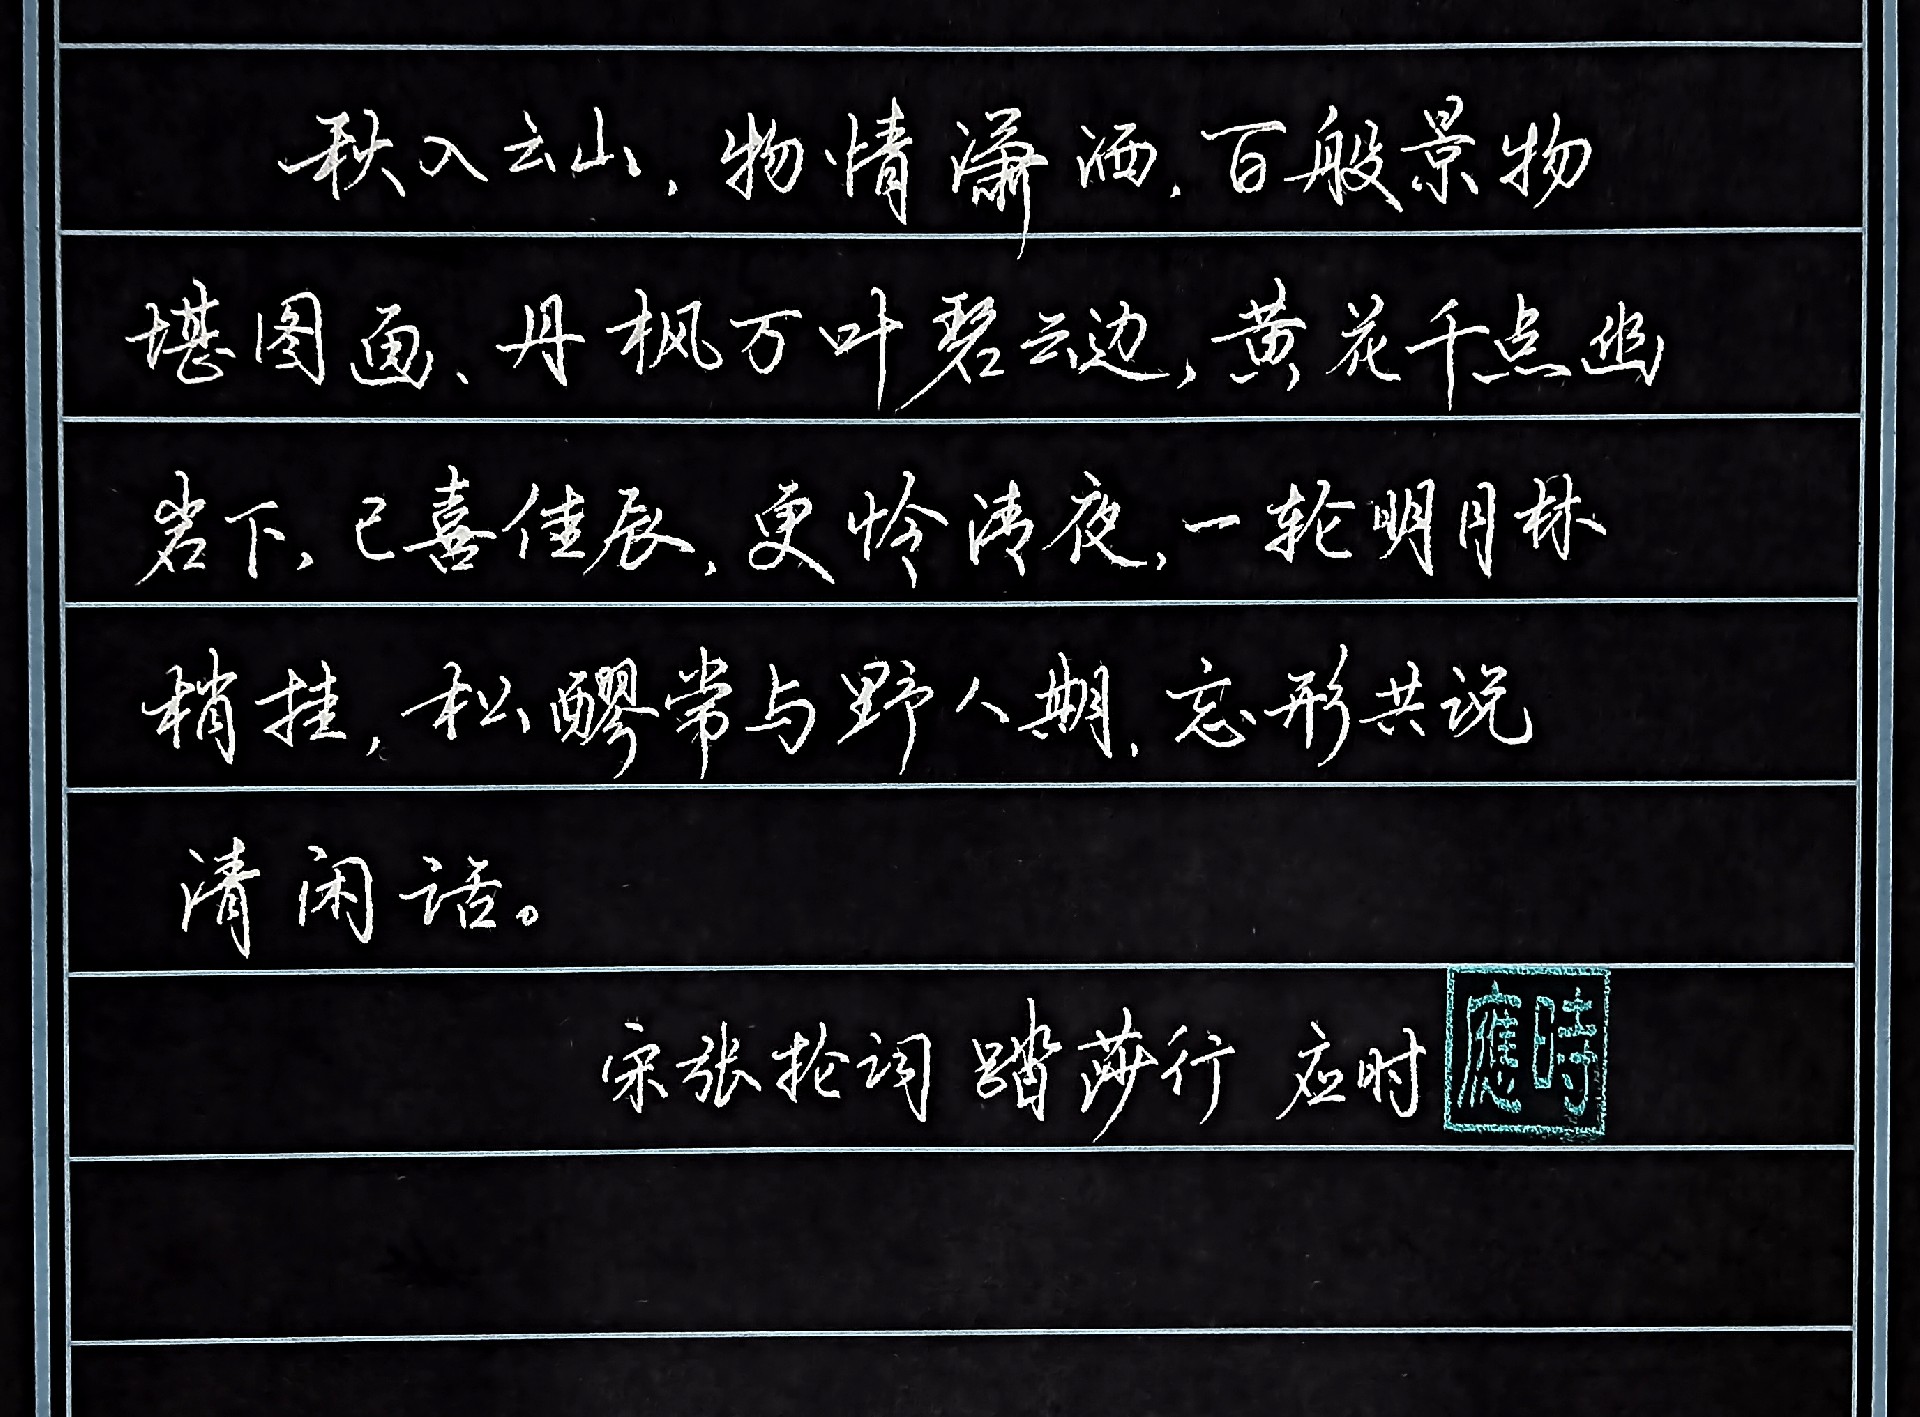 秋入云山，物情潇洒，百般景物
堪图画、丹枫万叶碧云边，黄花千点幽
岩下，已喜佳辰，更怜清夜，一轮明月林
梢挂，松醪常与野人期，忘形共说
清闲话。
宋张抡词 踏莎行 应时
應時